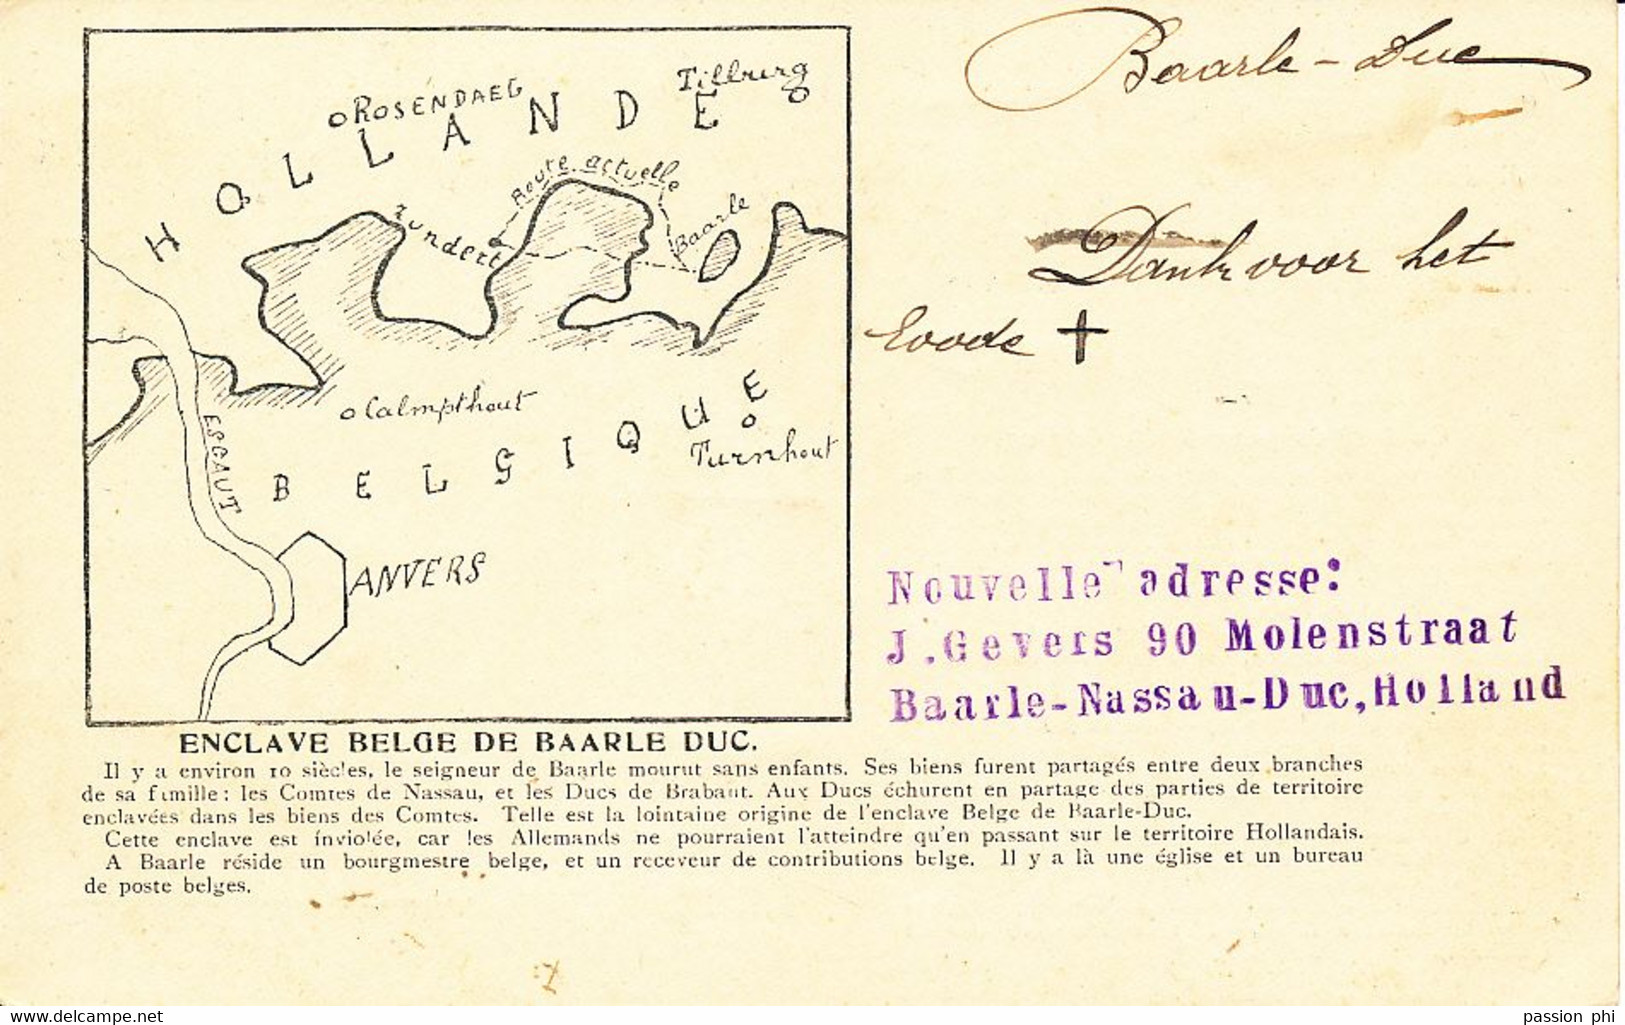 Baarle-Duc
Dank voor het
Tillburg
ROSENDAEG
HOLLANDE
Route actuelle
Baarle
Zundert
Calmpthout
ESCAUT
BELGIQUE
Turnhout
ANVERS
Nouvelle adresse:
J.Gevers 90 Molenstraat
Baarle-Nassau-Duc,Holland
ENCLAVE BELGE DE BAARLE DUC.
Il y a environ 10 siècles, le seigneur de Baarle mourut sans enfants. Ses biens furent partagés entre deux branches
de sa famille: les Comtes de Nassau, et les Ducs de Brabant. Aux Ducs échurent en partage des parties de territoire
enclavées dans les biens des Comtes. Telle est la lointaine origine de l'enclave Belge de Baarle-Duc.
Cette enclave est ínviolée, car les Allemands ne pourraient l'atteindre qu'en passant sur le territoire Hollandais.
A Baarle réside un bourgmestre belge, et un receveur de contributions belge. Il y a là une église et un bureau
de poste belges.
delcampe.net
passion phi